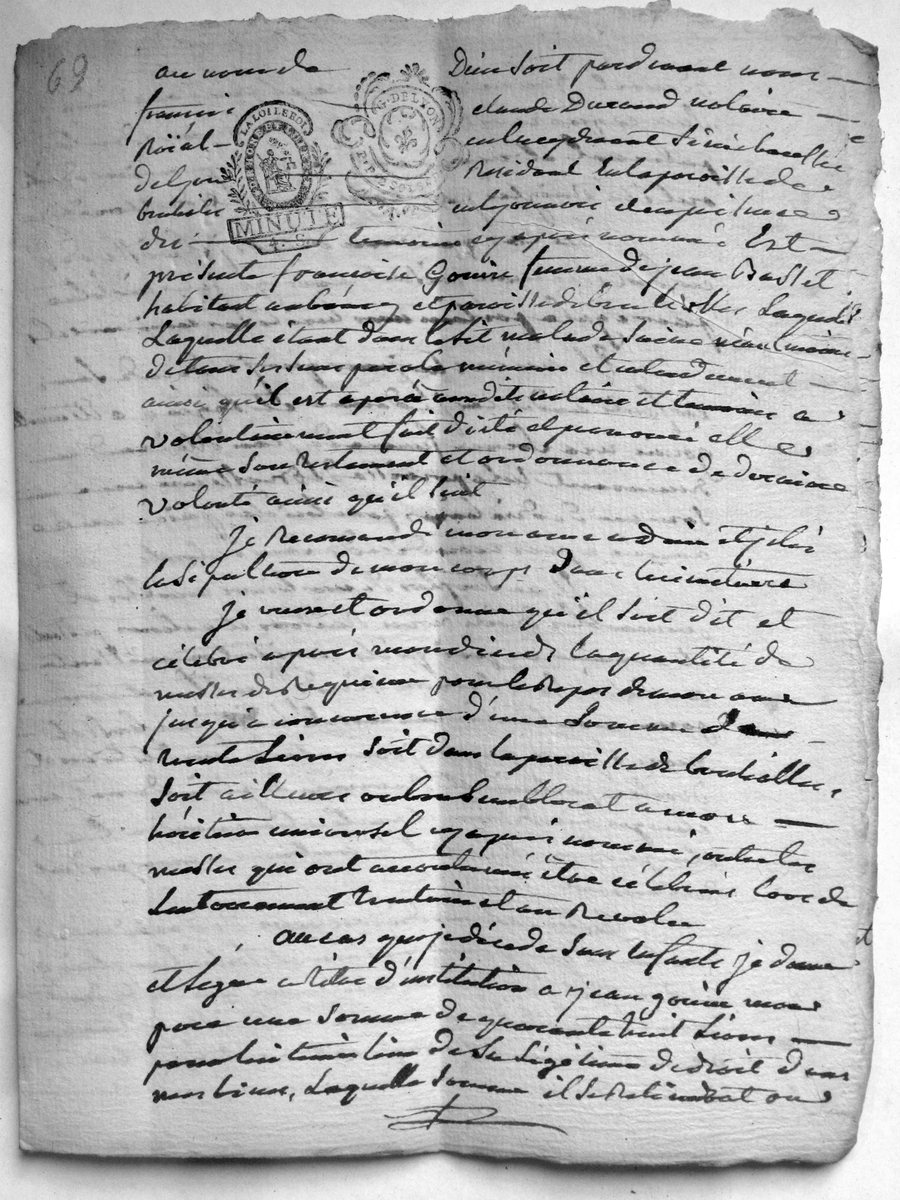 69
au nom de Dieu soit pardevant nous
françois claude Durand notaire
Roïal
LA LOI LE ROI
G. DE LYON
de Lyon Résident en la paroisse de
MINUTE
4. S.
brullioles en lyonnois et en présence
des témoins cy après nommés Est
présente françoise Goüin femme de jean Basset
habitant et paroisse de Laquelle
Laquelle étant dans le lit malade saine néanmoins
de tous ses sens parole mémoire et entendement
ainsi qu'il est aparu audit notaire et témoins a
volontairement fait dicté et prononcé elle
même son testament et ordonnance de dernière
volonté ainsi qu'il suit
je recomande mon ame a dieu et j'elis
la sépulture de mon corps dans le cimetière
je veux et ordonne qu'il soit dit et
célébré après mon décès la quantité de
messes de Requiem pour le repos de mon ame
jusqu'a concurrence d'une somme de
trente livres soit dans la paroisse de brullioles,
soit ailleurs ou bon semblerat a mon
héritier universel cy après nommé, outre les
messes qui ont accoutumé être célébrées lors de
L'enterrement et au
au cas que je décède sans enfants je donne
et Lègue a titre d'institution a jean goüin mon
père une somme de quarante huit Livres
pour lui tenir lieu de sa Légitime de droit dans
mes biens, Laquelle somme il ou